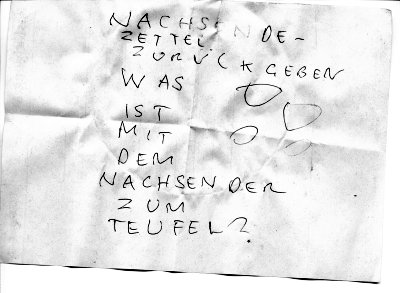 NACHSENDE-
ZETTEL
ZURÜCKGEBEN
WAS
IST
MIT
DEM
NACHSENDER
ZUM
TEUFEL?